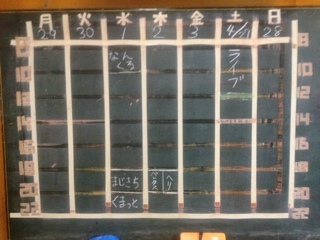 月 火 水 木 金 土 日
29 30 1 2 3 4/11 28
なんくろ
ライブ
8
10
12
14
16
18
20
22
まじさち
くまっと
ヘリ
10
12
14
16
18
20
22